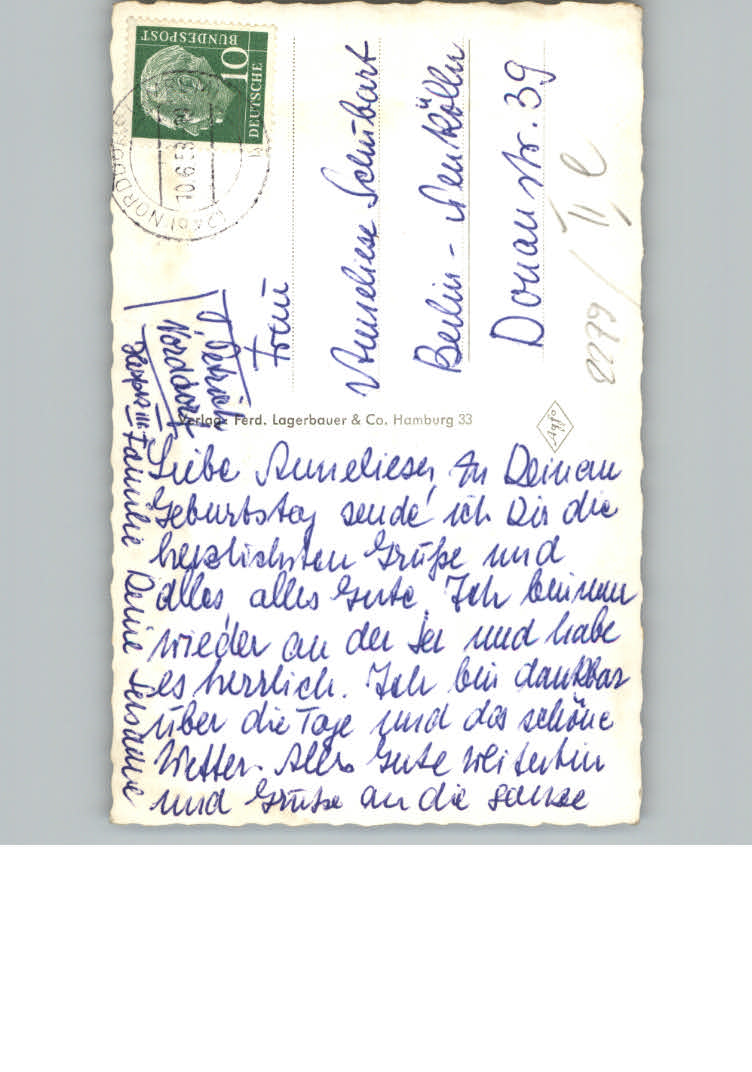 DEUTSCHE
BUNDESPOST
10
NORDDORF
10.6.58
Frau
Anneliese Schubart
Berlin - Neukölln
Donaustr. 39
2279 / II e
Norddorf
Verlag: Ferd. Lagerbauer & Co. Hamburg 33
Agfa
Liebe Anneliese, zu Deinem
Geburtstag sende ich Dir die
herzlichsten Grüße und
alles, alles Gute. Ich bin nun
wieder an der See und habe
es herrlich. Ich bin dankbar
über die Tage und das schöne
Wetter. Alles Gute weiterhin
und Grüße an die ganze
Familie Deine